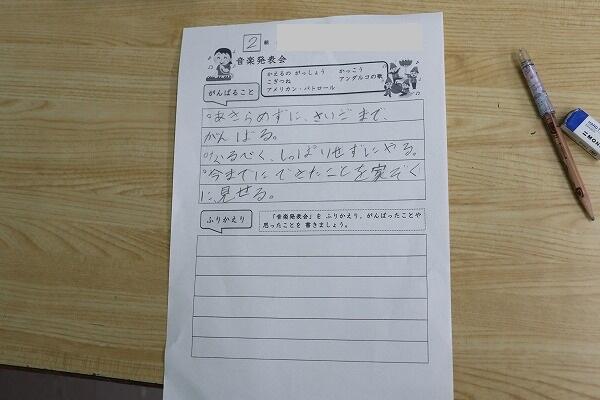 2 組
音楽発表会
かえるの がっしょう かっこう
こぎつね アンダルコの歌
アメリカン・パトロール
がんばること
・あきらめずに、さいごまで、
がんばる。
・なるべく、しっぱいせずにやる。
・今までにできたことを家ぞく
に見せる。
ふりかえり
「音楽発表会」を ふりかえり、がんばったことや
思ったことを 書きましょう。
MONO